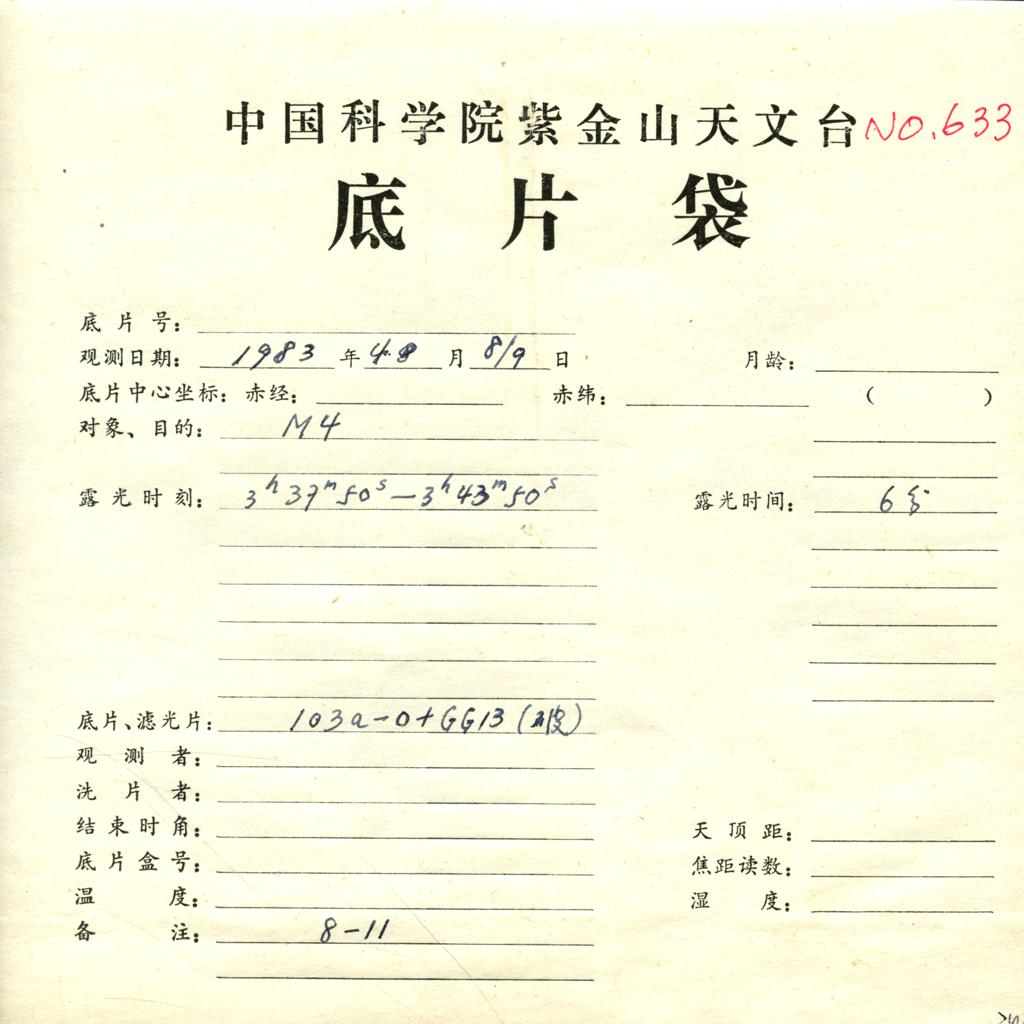 中国科学院紫金山天文台 NO.633
底片袋
底片号：
观测日期： 1983 年 4 月 8/9 日 月龄：
底片中心坐标：赤经： 赤纬： （ ）
对象、目的： M4
露光时刻： 3h37m50s—3h43m50s 露光时间： 6分
底片、滤光片： 103a-O+GG13
观测者：
洗片者：
结束时角： 天顶距：
底片盒号： 焦距读数：
温度： 湿度：
备注： 8-11